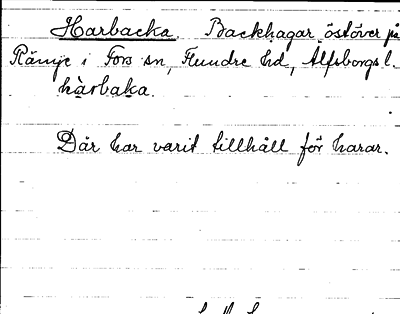 Harbacka. Backhagar östöver på
Ränje i Fors sn, Flundre hd, Älfsborgs l.
hàrbaka.
Där har varit tillhåll för harar.